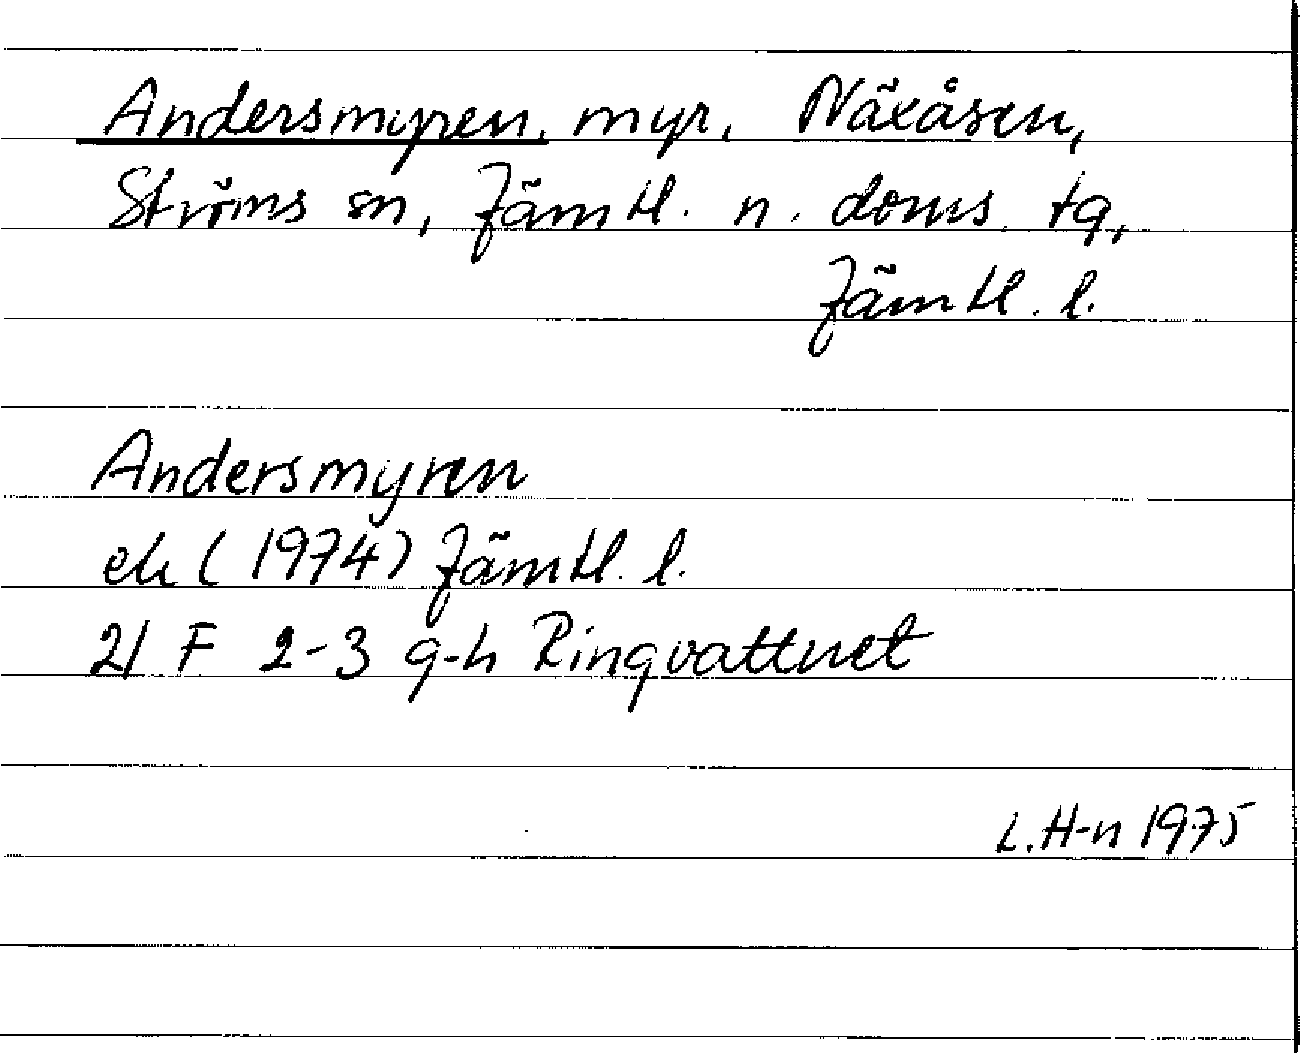 Andersmyren, myr, Näxåsen,
Ströms sn, Jämtl. n. doms. tg,
Jämtl. l.
Andersmyren
ek (1974) Jämtl. l.
21 F 2-3 g-h Ringvattnet
L. H-n 1975